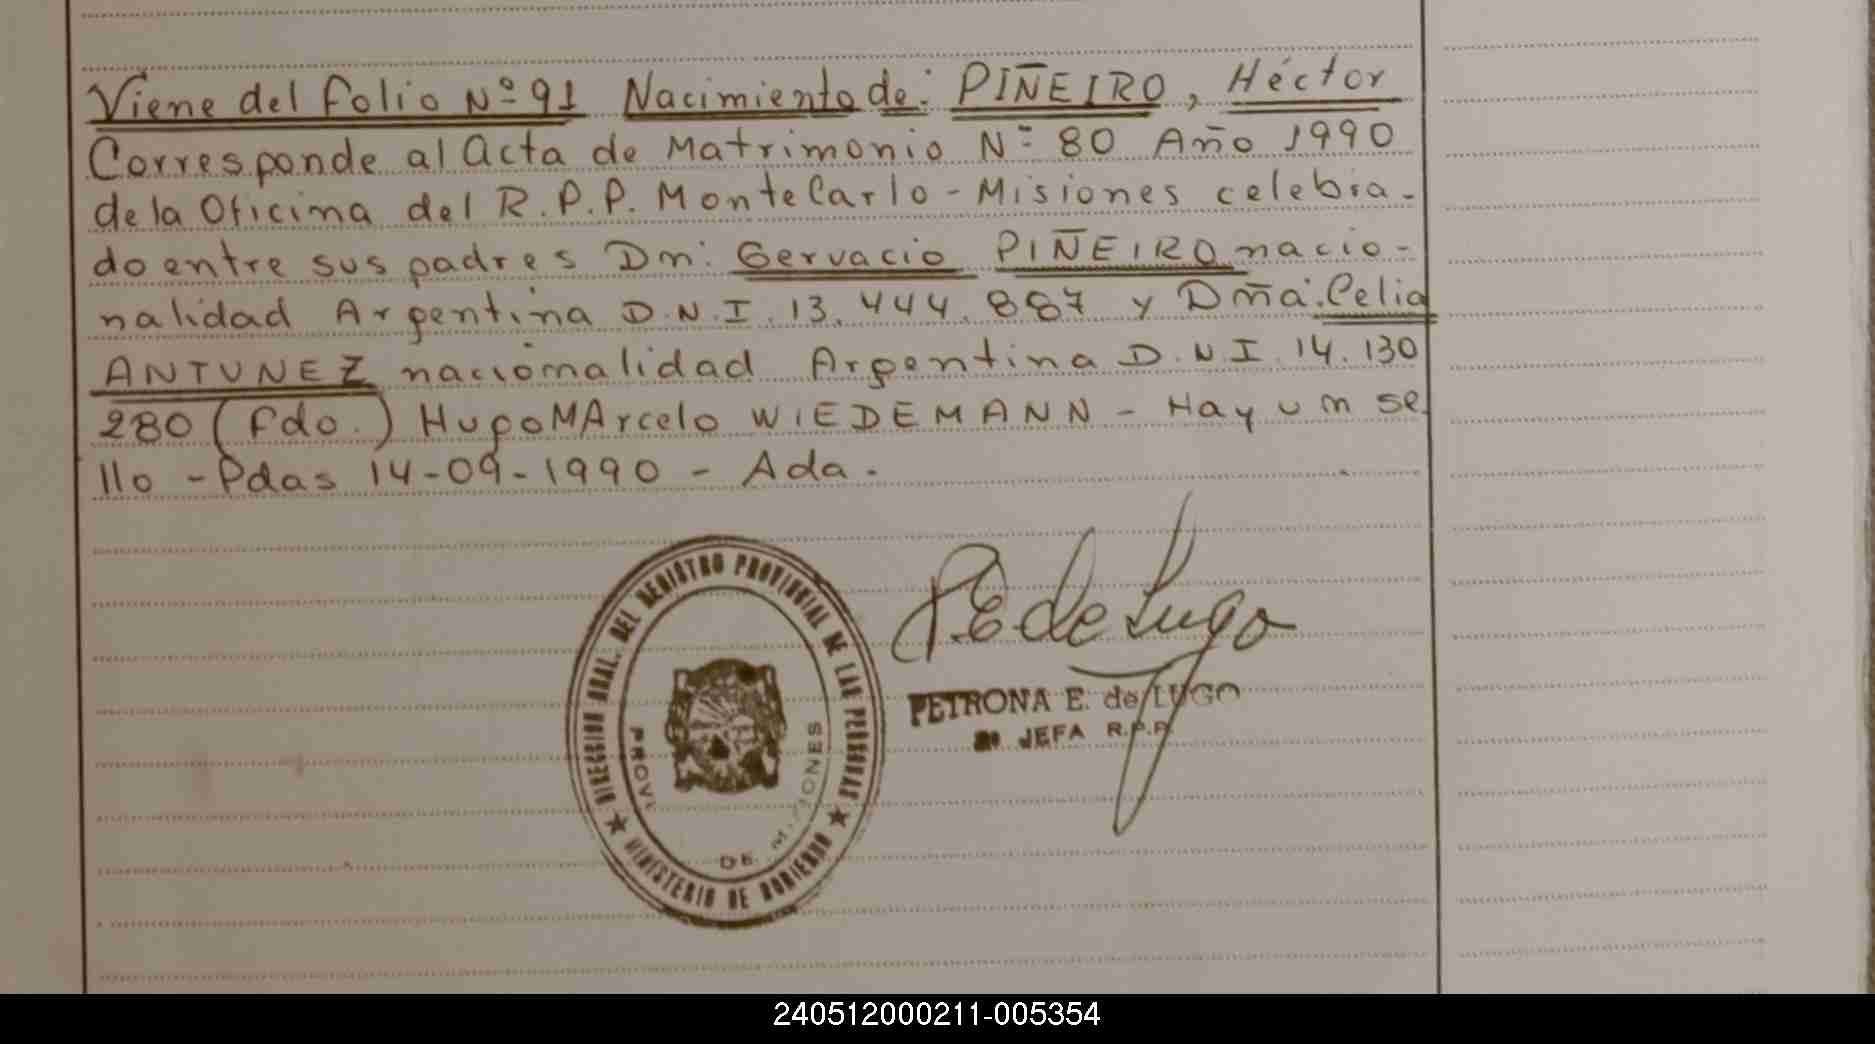 Viene del folio Nº 91 Nacimiento de: PIÑEIRO, Héctor
Corresponde al Acta de Matrimonio Nº 80 Año 1990
de la Oficina del R.P.P. MonteCarlo - Misiones celebra-
do entre sus padres Dn: Gervacio PIÑEIRO nacio-
nalidad Argentina D.N.I. 13.444.887 y Dña: Celia
ANTUNEZ nacionalidad Argentina D.N.I. 14.130
280 (fdo.) Hugo MArcelo WIEDEMANN - Hay un se
llo - Pdas 14-09-1990 - Ada.
DIRECCION GRAL. DEL REGISTRO PROVINCIAL DE LAS PERSONAS
MINISTERIO DE GOBIERNO
PROV. DE MISIONES
P. E. de Lugo
PETRONA E. de LUGO
JEFA R.P.P.
240512000211-005354